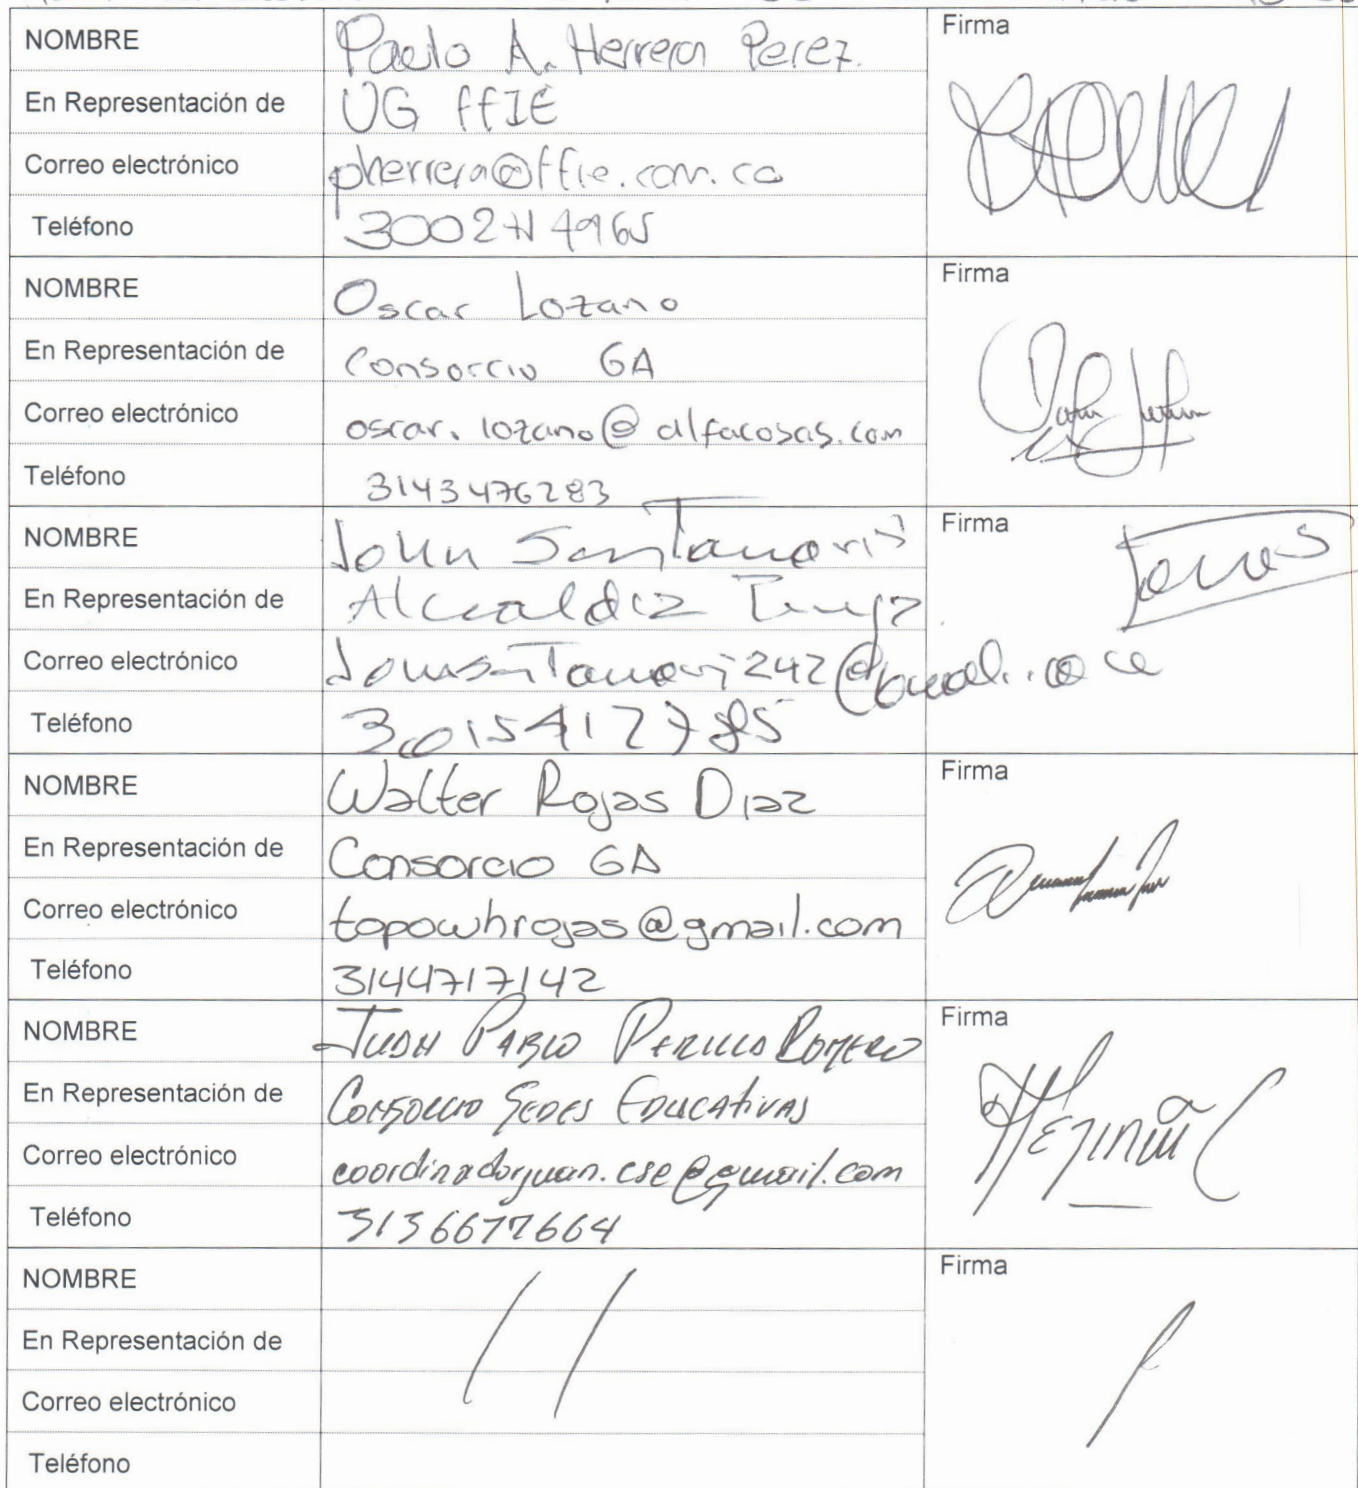 NOMBRE Paulo A. Herrera Perez. Firma
En Representación de UG ffIE
Correo electrónico pherrera@ffie.com.co
Teléfono
NOMBRE Oscar Lozano Firma
En Representación de Consorcio GA
Correo electrónico oscar.lozano@alfacosas.com
Teléfono 3143476283
NOMBRE John Santamaria Firma
En Representación de Alcaldia Tunja
Correo electrónico
Teléfono 3015412785
NOMBRE Walter Rojas Diaz Firma
En Representación de Consorcio GA
Correo electrónico topowhrojas@gmail.com
Teléfono 3144717142
NOMBRE JUAN PABLO PERILLA ROMERO Firma
En Representación de CONSORCIO SEDES EDUCATIVAS
Correo electrónico coordinadorjuan.cse@gmail.com
Teléfono 3136677664
NOMBRE Firma
En Representación de
Correo electrónico
Teléfono